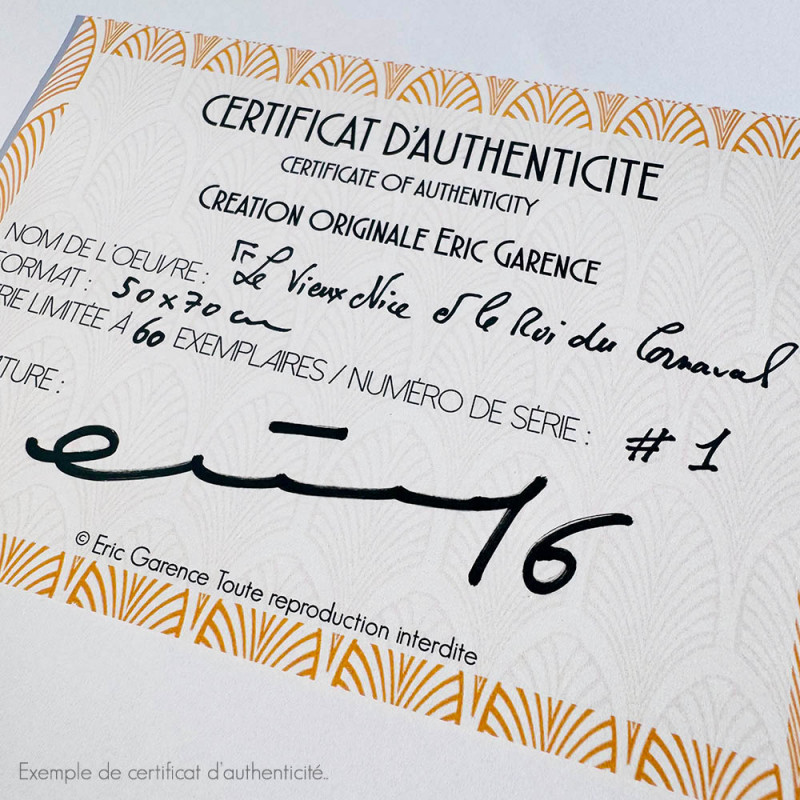 CERTIFICAT D'AUTHENTICITE
CERTIFICATE OF AUTHENTICITY
CREATION ORIGINALE ERIC GARENCE
NOM DE L'OEUVRE : Le Vieux Nice et le Roi du Carnaval
FORMAT : 50x70 cm
RIE LIMITÉE À 60 EXEMPLAIRES / NUMÉRO DE SÉRIE : # 1
TURE :
16
© Eric Garence Toute reproduction interdite
Exemple de certificat d'authenticité..